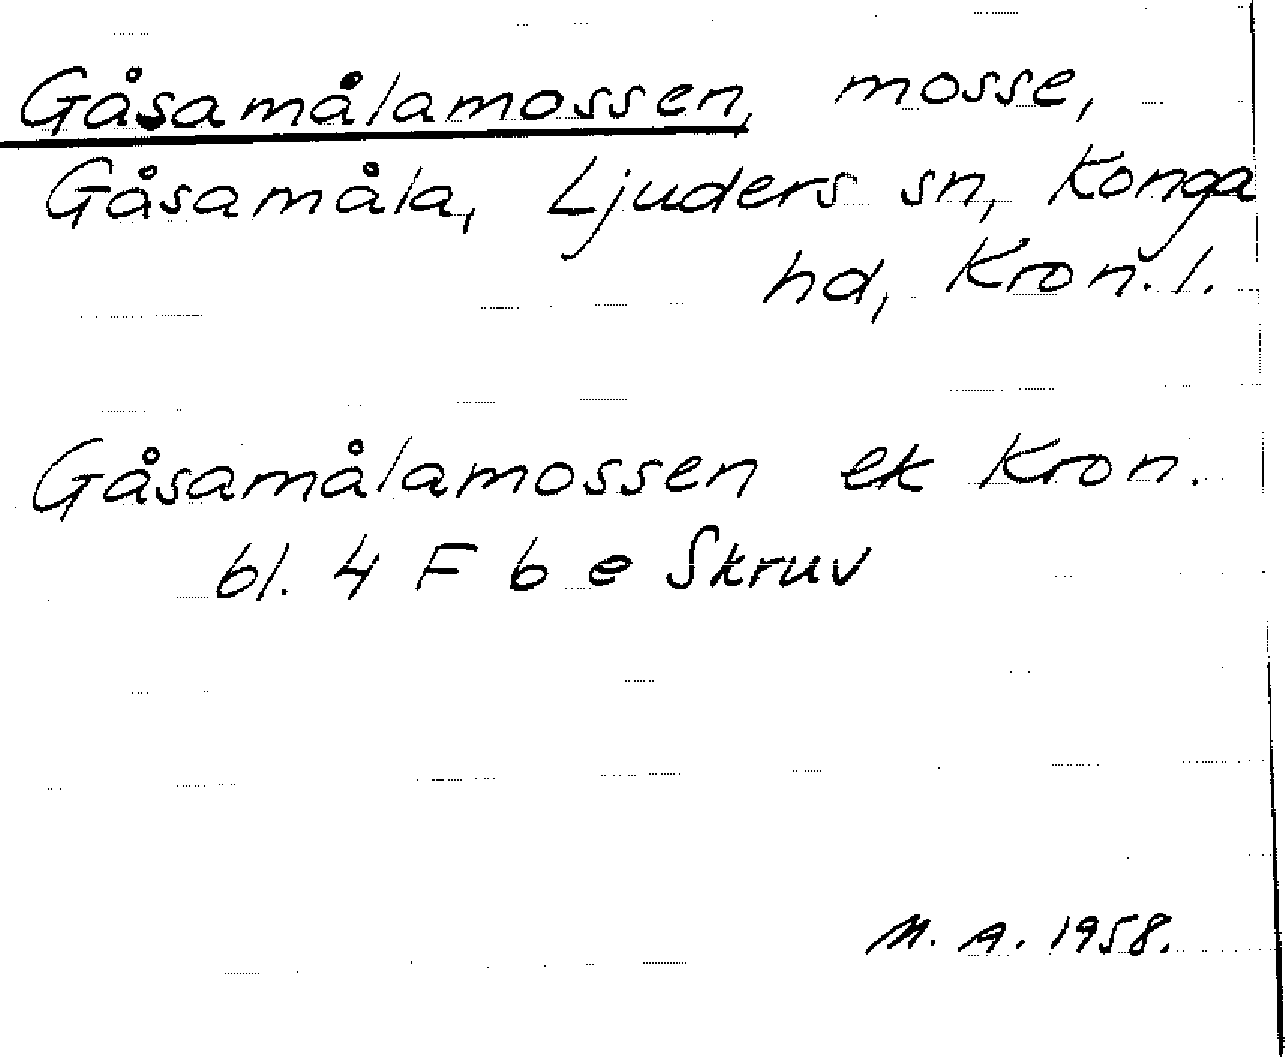 Gåsamålamossen, mosse,
Gåsamåla, Ljuders sn, Konga
hd, Kron. l.
Gåsamålamossen ek Kron.
bl. 4 F b e Skruv
M. A. 1958.